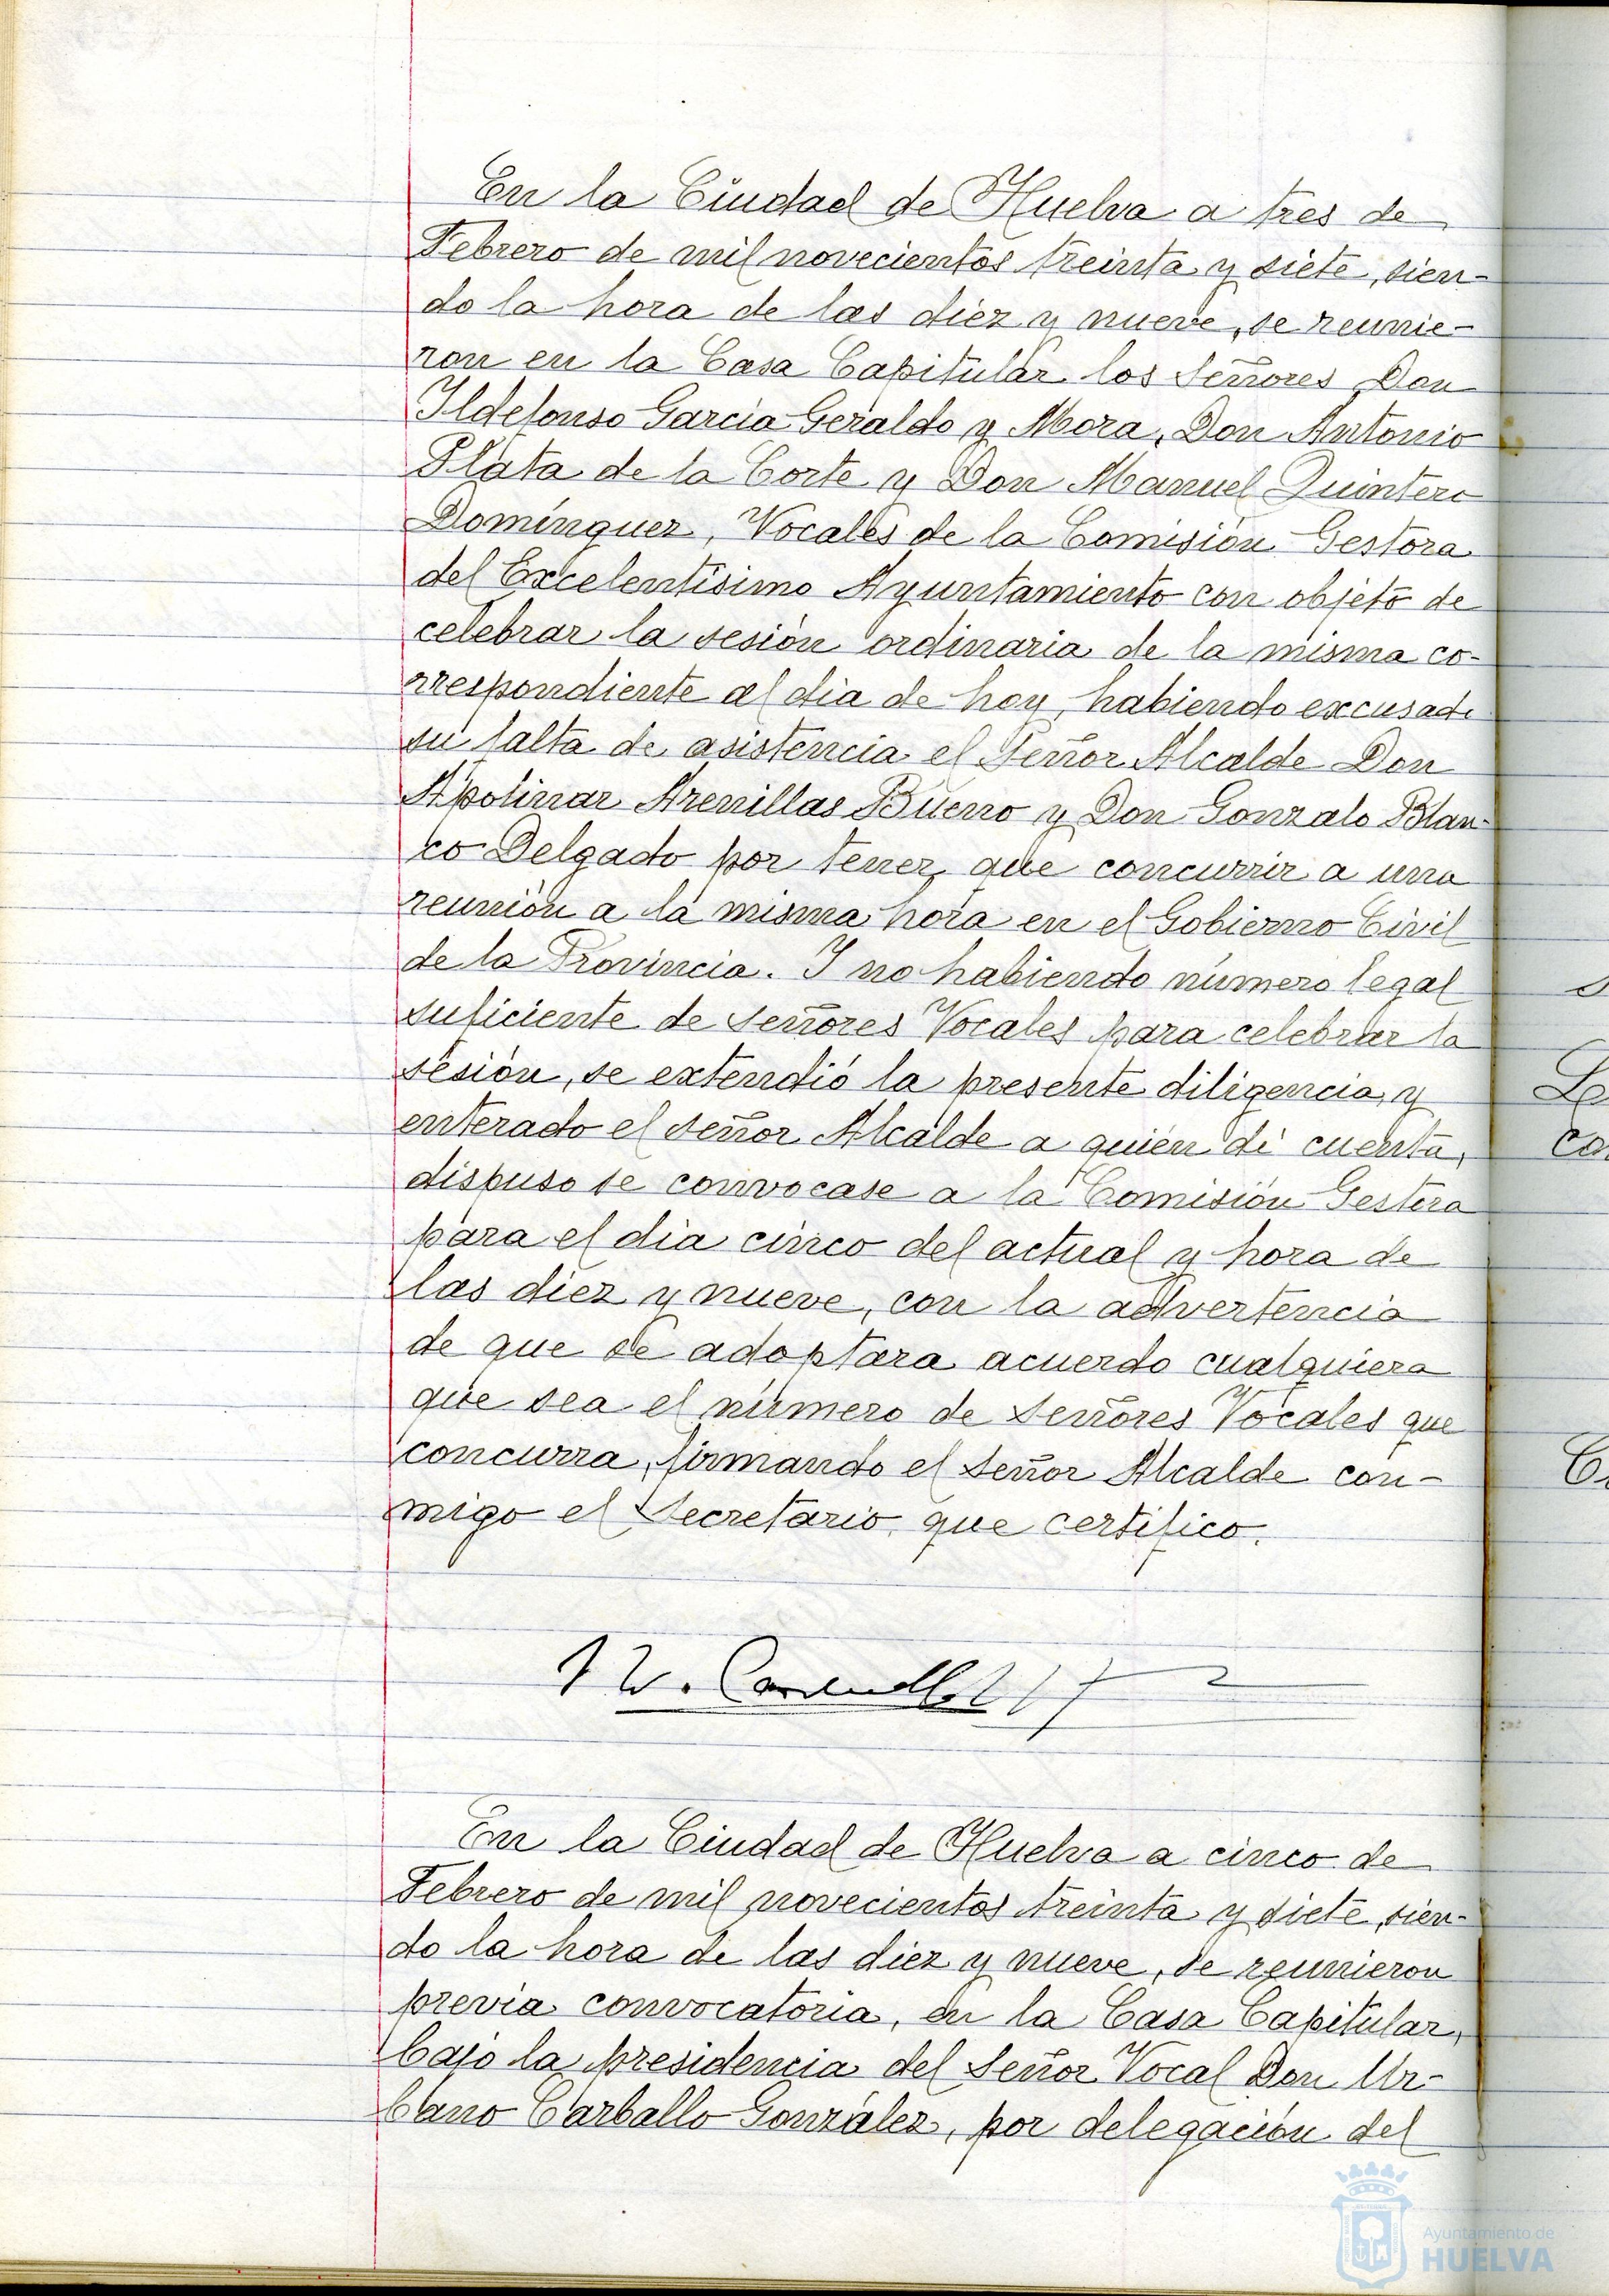 En la Ciudad de Huelva a tres de
Febrero de mil novecientos treinta y siete, sien-
do la hora de las diez y nueve, se reunie-
ron en la Casa Capitular los Señores Don
Ildefonso García Geraldo y Mora, Don Antonio
Plata de la Corte y Don Manuel Quintero
Domínguez, Vocales de la Comisión Gestora
del Excelentísimo Ayuntamiento con objeto de
celebrar la sesión ordinaria de la misma co-
rrespondiente al día de hoy, habiendo excusado
su falta de asistencia el Señor Alcalde Don
Apolinar Arenillas Bueno y Don Gonzalo Blan-
co Delgado por tener que concurrir a una
reunión a la misma hora en el Gobierno Civil
de la Provincia. Y no habiendo número legal
suficiente de señores Vocales para celebrar la
sesión, se extendió la presente diligencia, y
enterado el señor Alcalde a quien dí cuenta,
dispuso se convocase a la Comisión Gestora
para el día cinco del actual y hora de
las diez y nueve, con la advertencia
de que se adoptara acuerdo cualquiera
que sea el número de señores Vocales que
concurra, firmando el señor Alcalde con-
migo el Secretario que certifico.
En la Ciudad de Huelva a cinco de
Febrero de mil novecientos treinta y siete, sien-
do la hora de las diez y nueve, se reunieron
previa convocatoria, en la Casa Capitular,
bajo la presidencia del señor Vocal Don Ur-
bano Carballo González, por delegación del
Ayuntamiento de
HUELVA